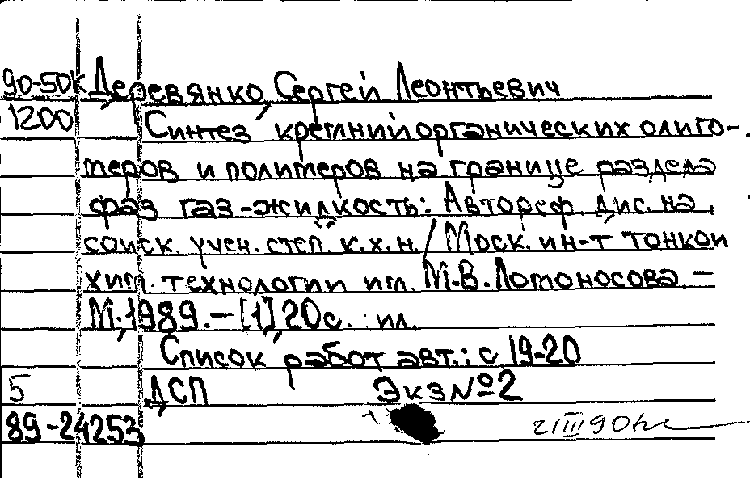 90-50к Деревянко, Сергей Леонтьевич
1200 Синтез кремнийорганических олиго-
меров и полимеров на границе раздела
фаз газ-жидкость: Автореф. дис. на
соиск. учен. степ. к.х.н. / Моск. ин-т тонкой
хим. технологии им. М.В. Ломоносова. –
М., 1989. – [1], 20 с. : ил.
Список работ авт.: с 19-20
5 ДСП Экз №2
89-24253